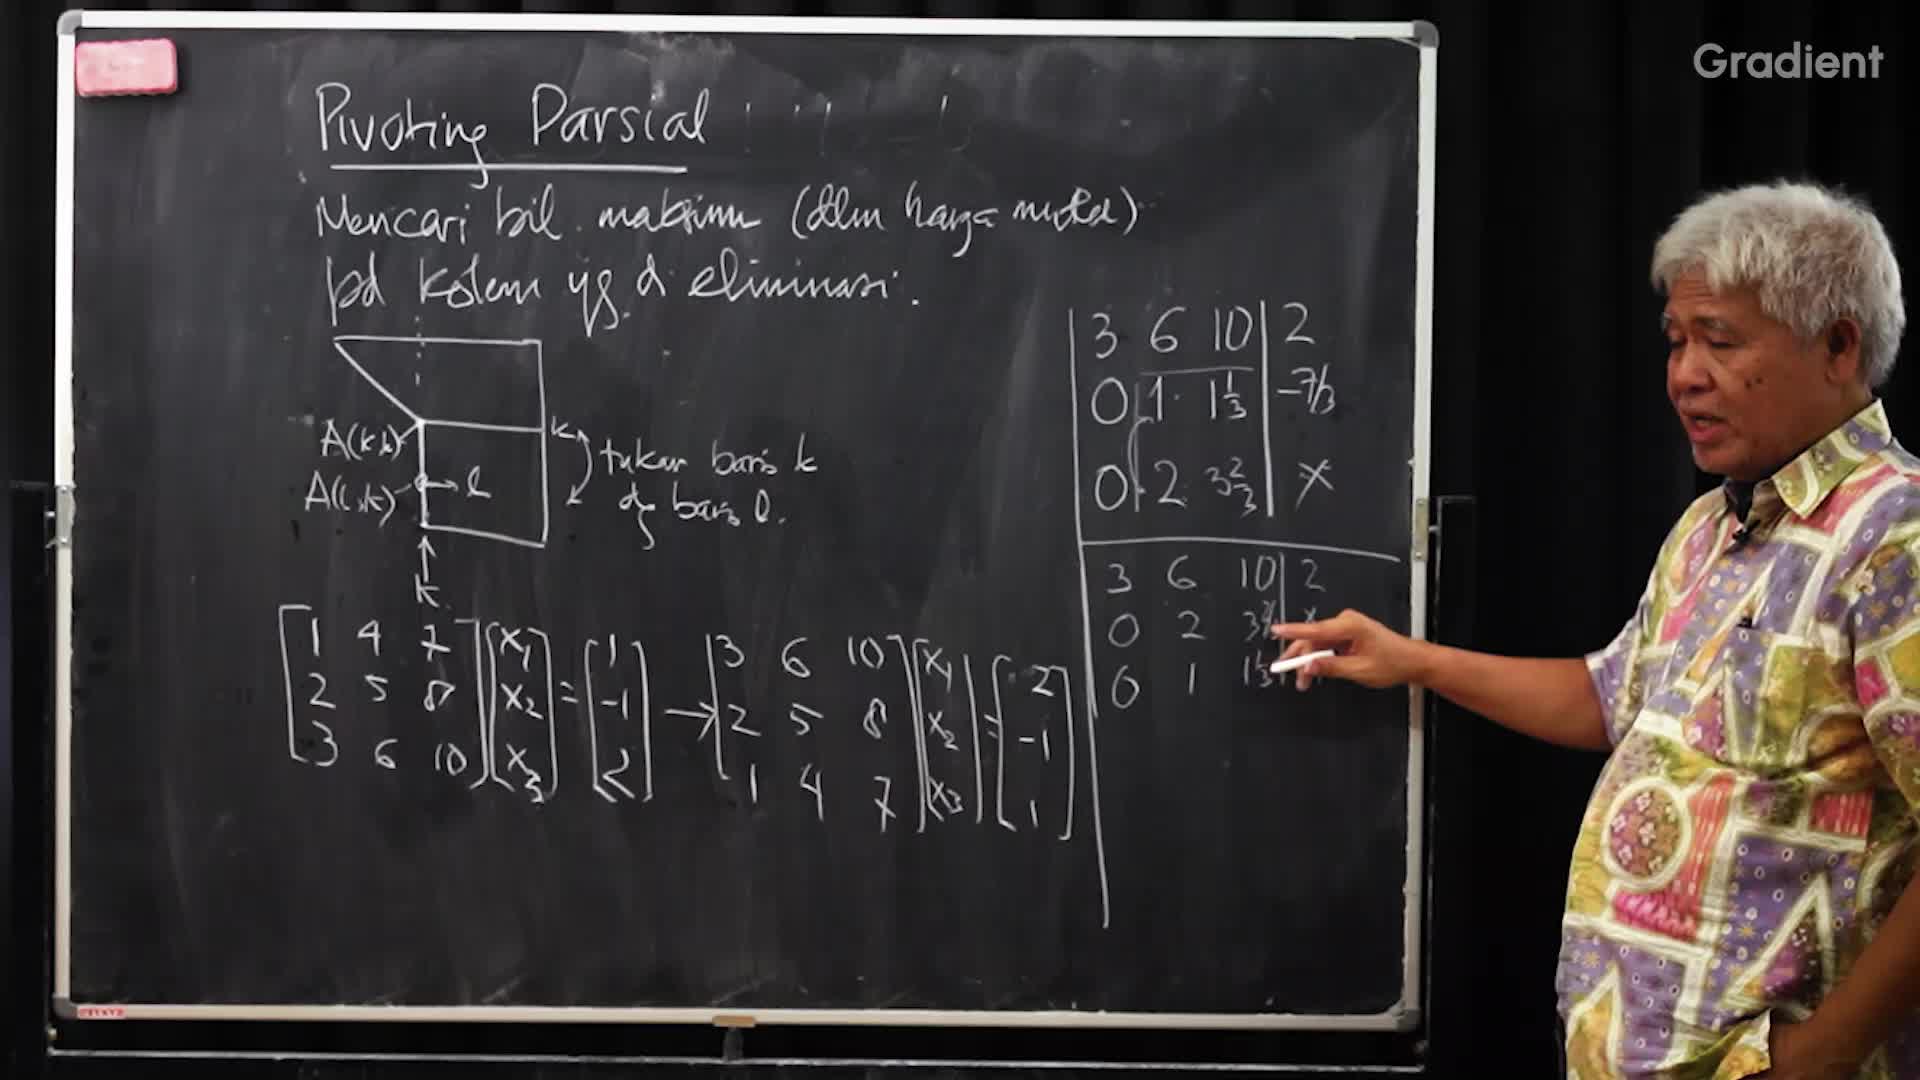 Gradient
Pivoting Parsial
Mencari bil. maksimum (dlm harga mutlak)
pd kolom yg di eliminasi.
A(k,k)
A(l,k)
l
k
k
tukar baris k
dg baris l.
1 4 7 x1 1
2 5 8 x2 = -1
3 6 10 x3 2
→
3 6 10 x1 2
2 5 8 x2 = -1
1 4 7 x3 1
3 6 10 2
0 1 1 1/3 -7/3
0 2 3 2/3 x
3 6 10 2
0 2 3 2/3 x
0 1 1 1/3